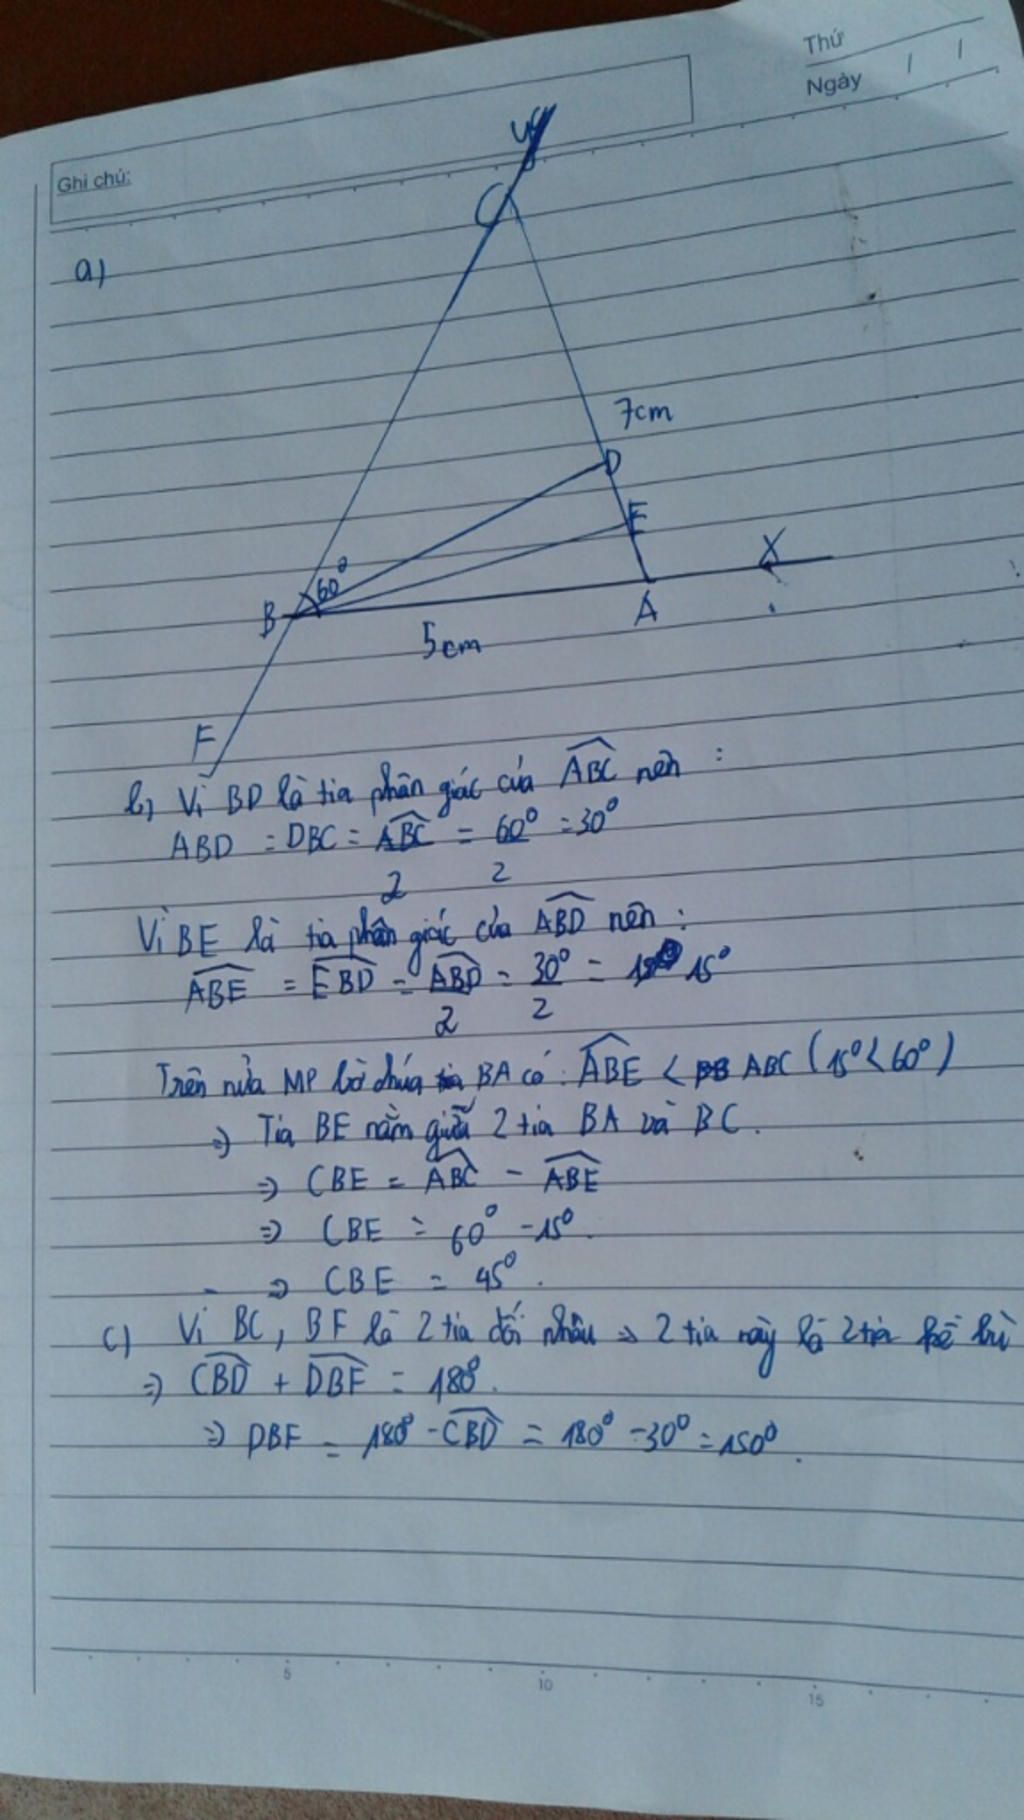 Thứ
Ngày / /
Ghi chú:
a)
y
C
7cm
D
E
X
60°
B
A
5cm
F
b) Vì BD là tia phân giác của ABC nên :
ABD = DBC = ABC/2 = 60°/2 = 30°
Vì BE là tia phân giác của ABD nên :
ABE = EBD = ABD/2 = 30°/2 = 15°
Trên nửa MP bờ chứa tia BA có : ABE < ABC (15° < 60°)
=> Tia BE nằm giữa 2 tia BA và BC.
=> CBE = ABC - ABE
=> CBE = 60° - 15°.
=> CBE = 45°.
c) Vì BC, BF là 2 tia đối nhau => 2 tia này là 2 tia kề bù
=> CBD + DBF = 180°.
=> DBF = 180° - CBD = 180° - 30° = 150°.
5 10 15